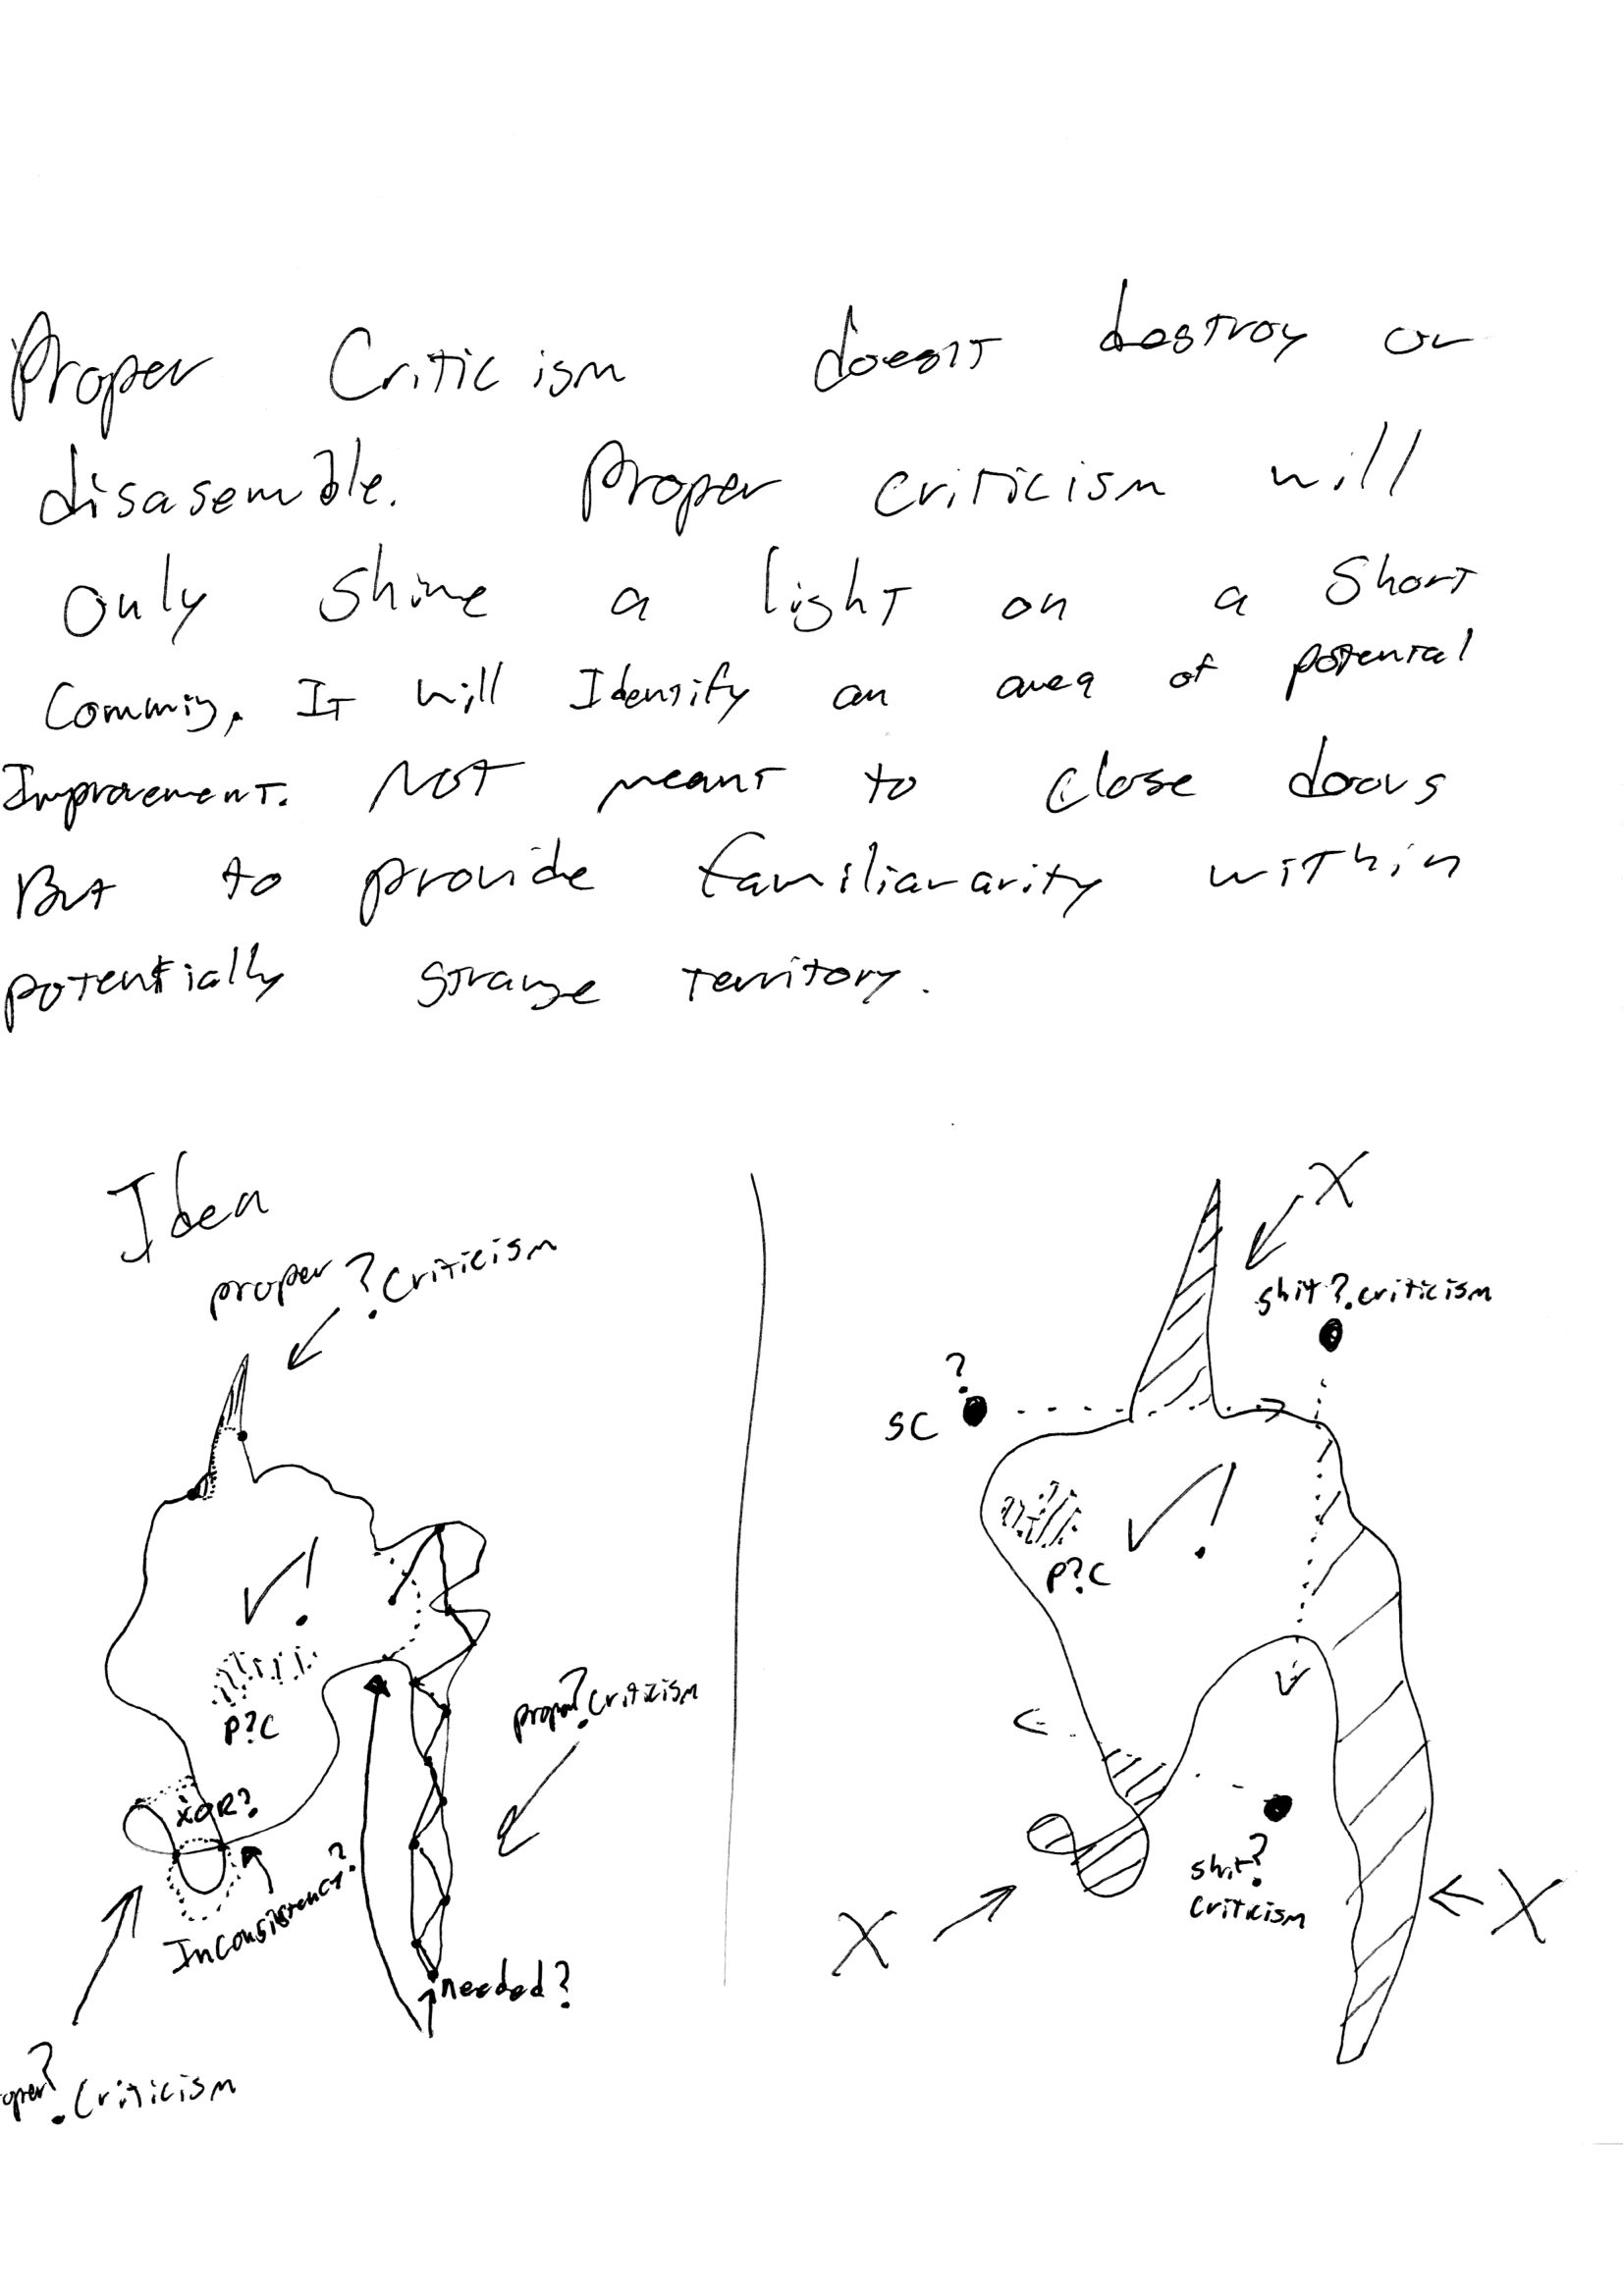 Proper Criticism doesnt destroy or
disasemble. Proper criticism will
Only shine a light on a Short
Comming. It will Identify an area of potential
Improvement. Not meant to close doors
But to provide familiararity within
potentially strange territory.
Idea
proper ? Criticism
X
shit?criticism
?
SC
✓!
P?C
✓!
P?C
proper?criticism
XOR?
Inconsistency?
shit?
criticism
X
X
needed?
oper?
Criticism